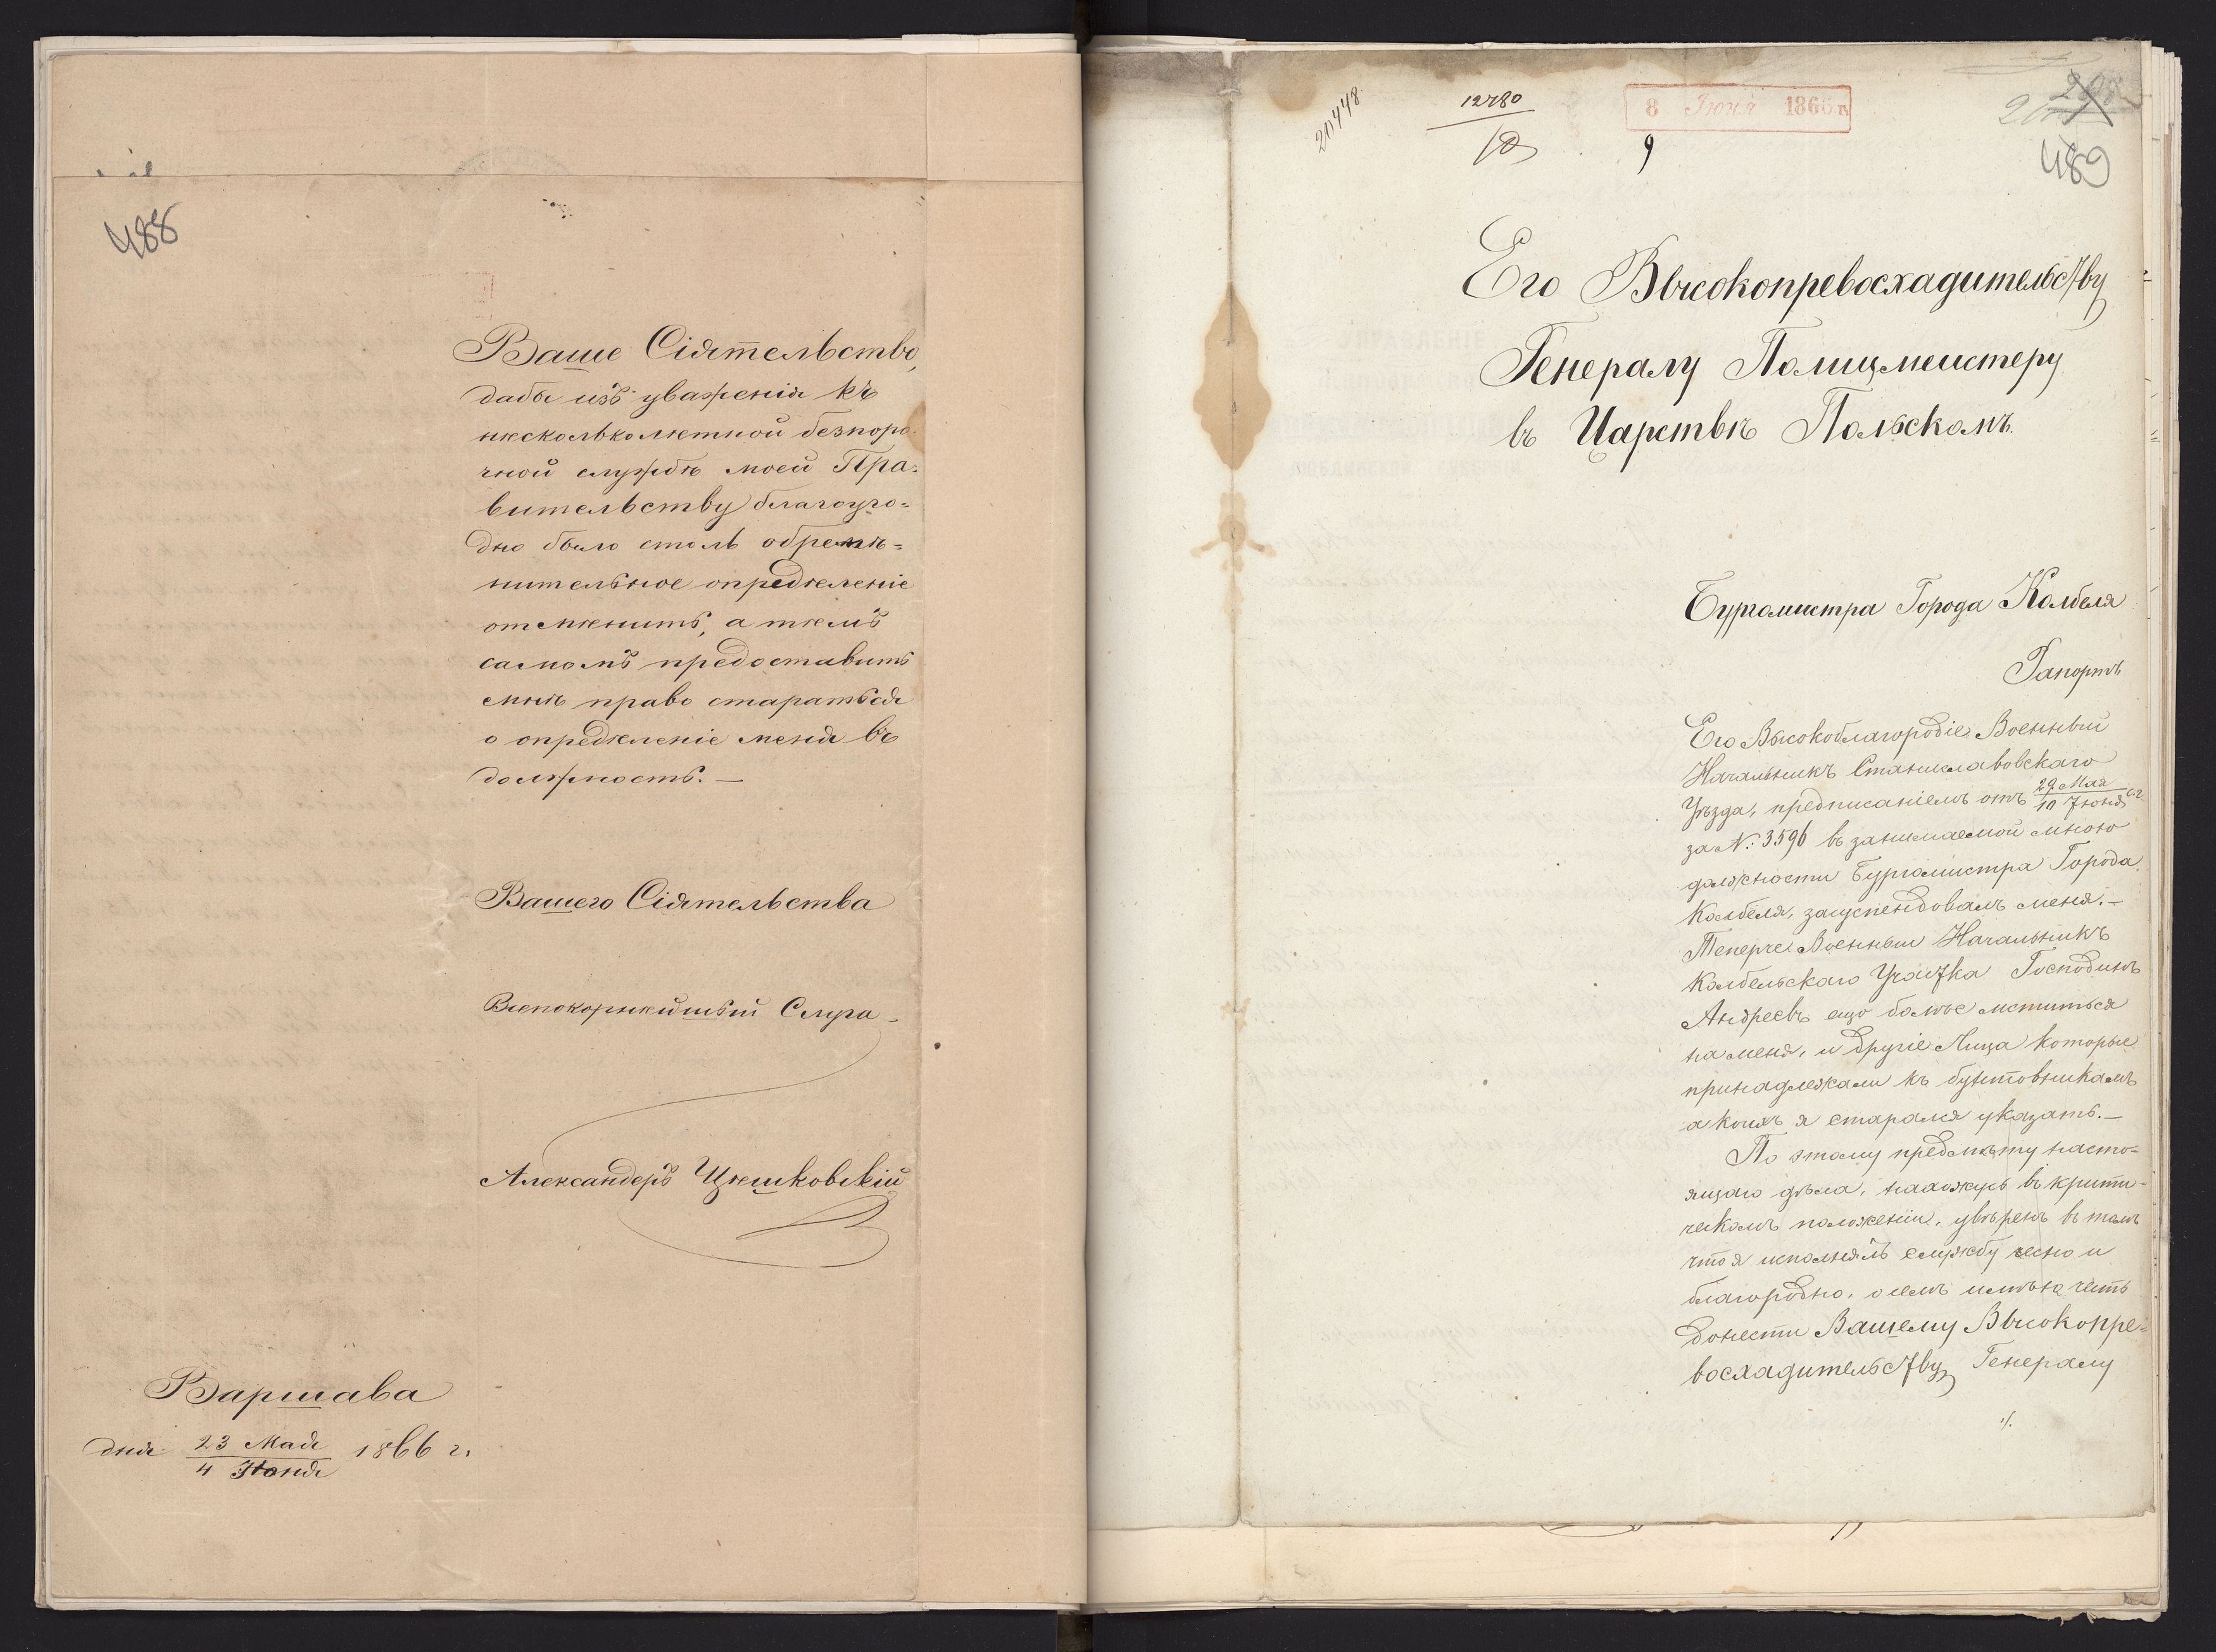 488
Ваше Сіятельство,
дабы изъ уваженія къ
нѣсколько лѣтной безпоро-
чной службѣ моей Пра-
вительству благоуго-
дно было столь обремѣ-
нительное опредѣленіе
отмѣнить, а тѣмъ
самомъ предоставить
мнѣ право стараться
о опредѣленіе меня въ
должность. —
Вашего Сіятельства
Всепокорнѣйшый Слуга
Александеръ Цѣшковскій
Варшава
дня 23 Мая / 4 Іюня 1866 г.
20448
12780
8 Іюня 1866 г.
9
489
Его Высокопревосхадительству
Генералу Полицмеистеру
въ Царствѣ Польскомъ.
Бургомистра Города Колбеля
Рапортъ
Его Высокоблагородіе Военный
Начальникъ Станиславовскаго
Уѣзда, предписаніемъ отъ 29 Мая / 10 Іюня с.г.
за №: 3596 въ занимаемой мною
должности Бургомистра Города
Колбеля, засуспендовалъ меня. —
Теперче Военный Начальникъ
Колбельскаго Участка Господинъ
Андреевъ ещо болѣе мститься
на меня, и другіе Лица которые
принадлежали къ бунтовникамъ
а коихъ я старался указать. —
По этому предмѣту насто-
ящаго дѣла, нахожусь въ крити-
ческомъ положеніи, увѣренъ въ томъ
что я исполнялъ службу чесно и
благородно, о чемъ имѣю честь
донести Вашему Высокопре-
восхадительству Генералу
./.